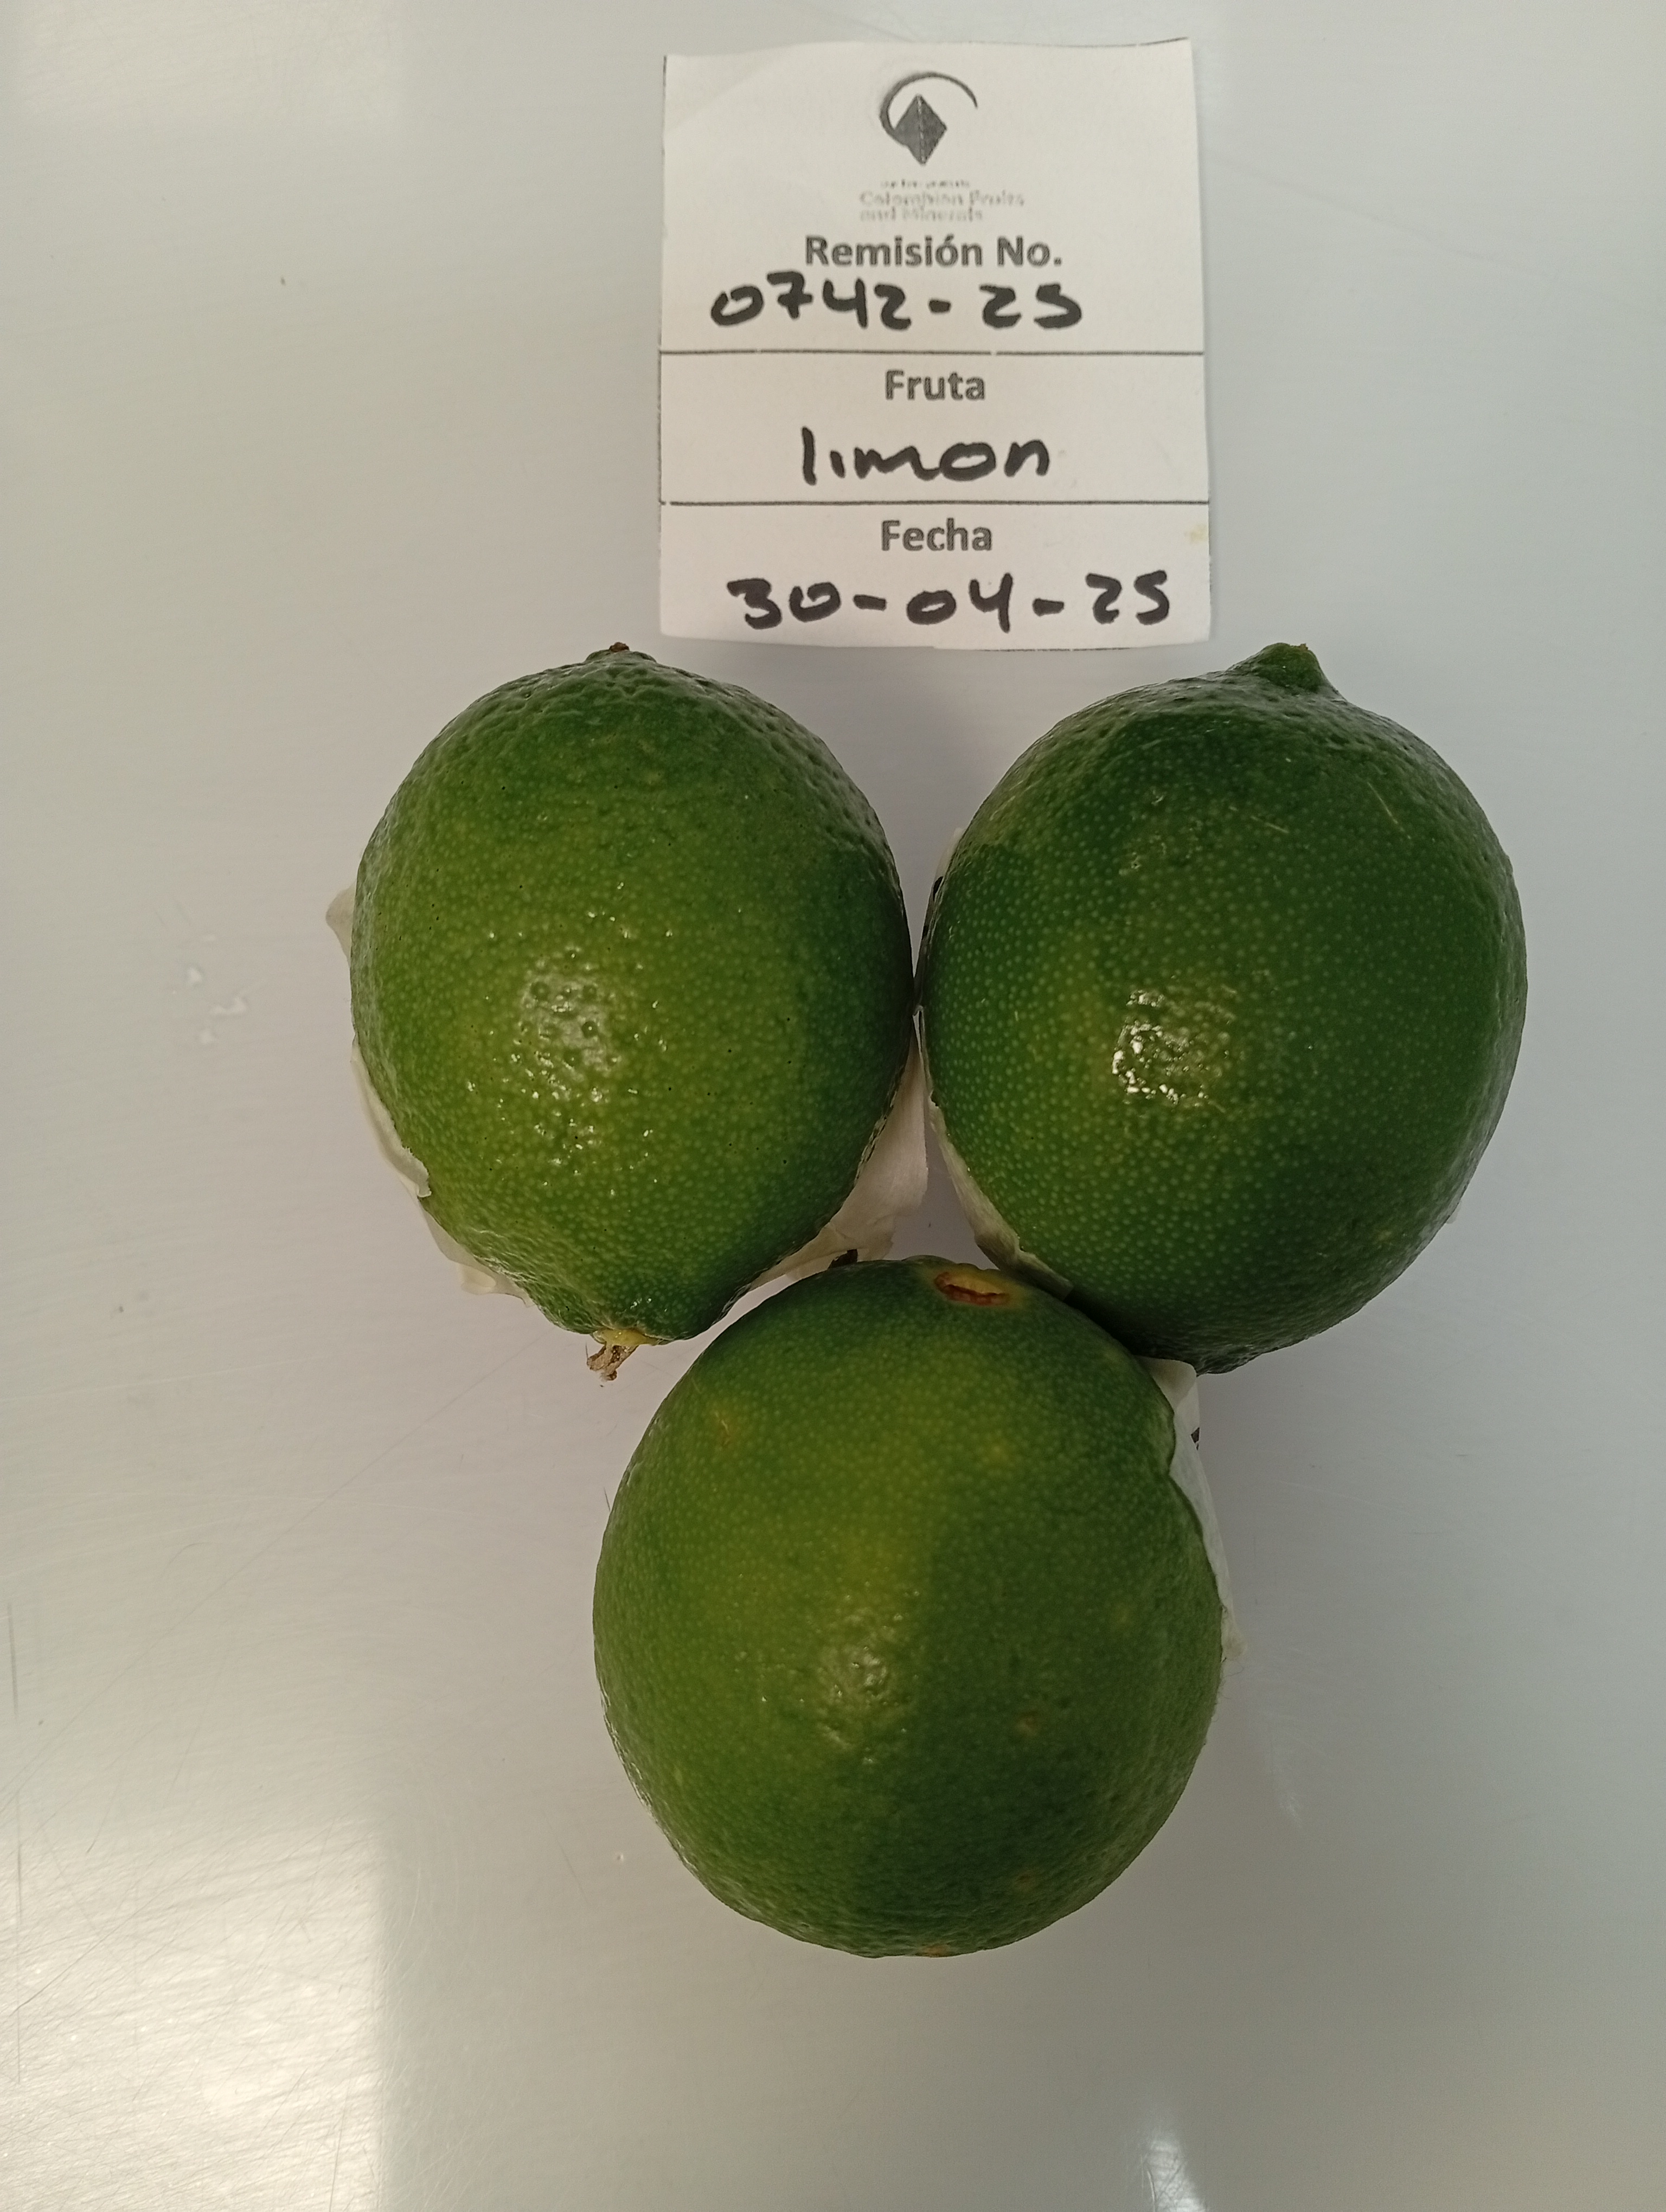 Colombian Fruits
and Minerals
Remisión No.
0742-25
Fruta
limon
Fecha
30-04-25